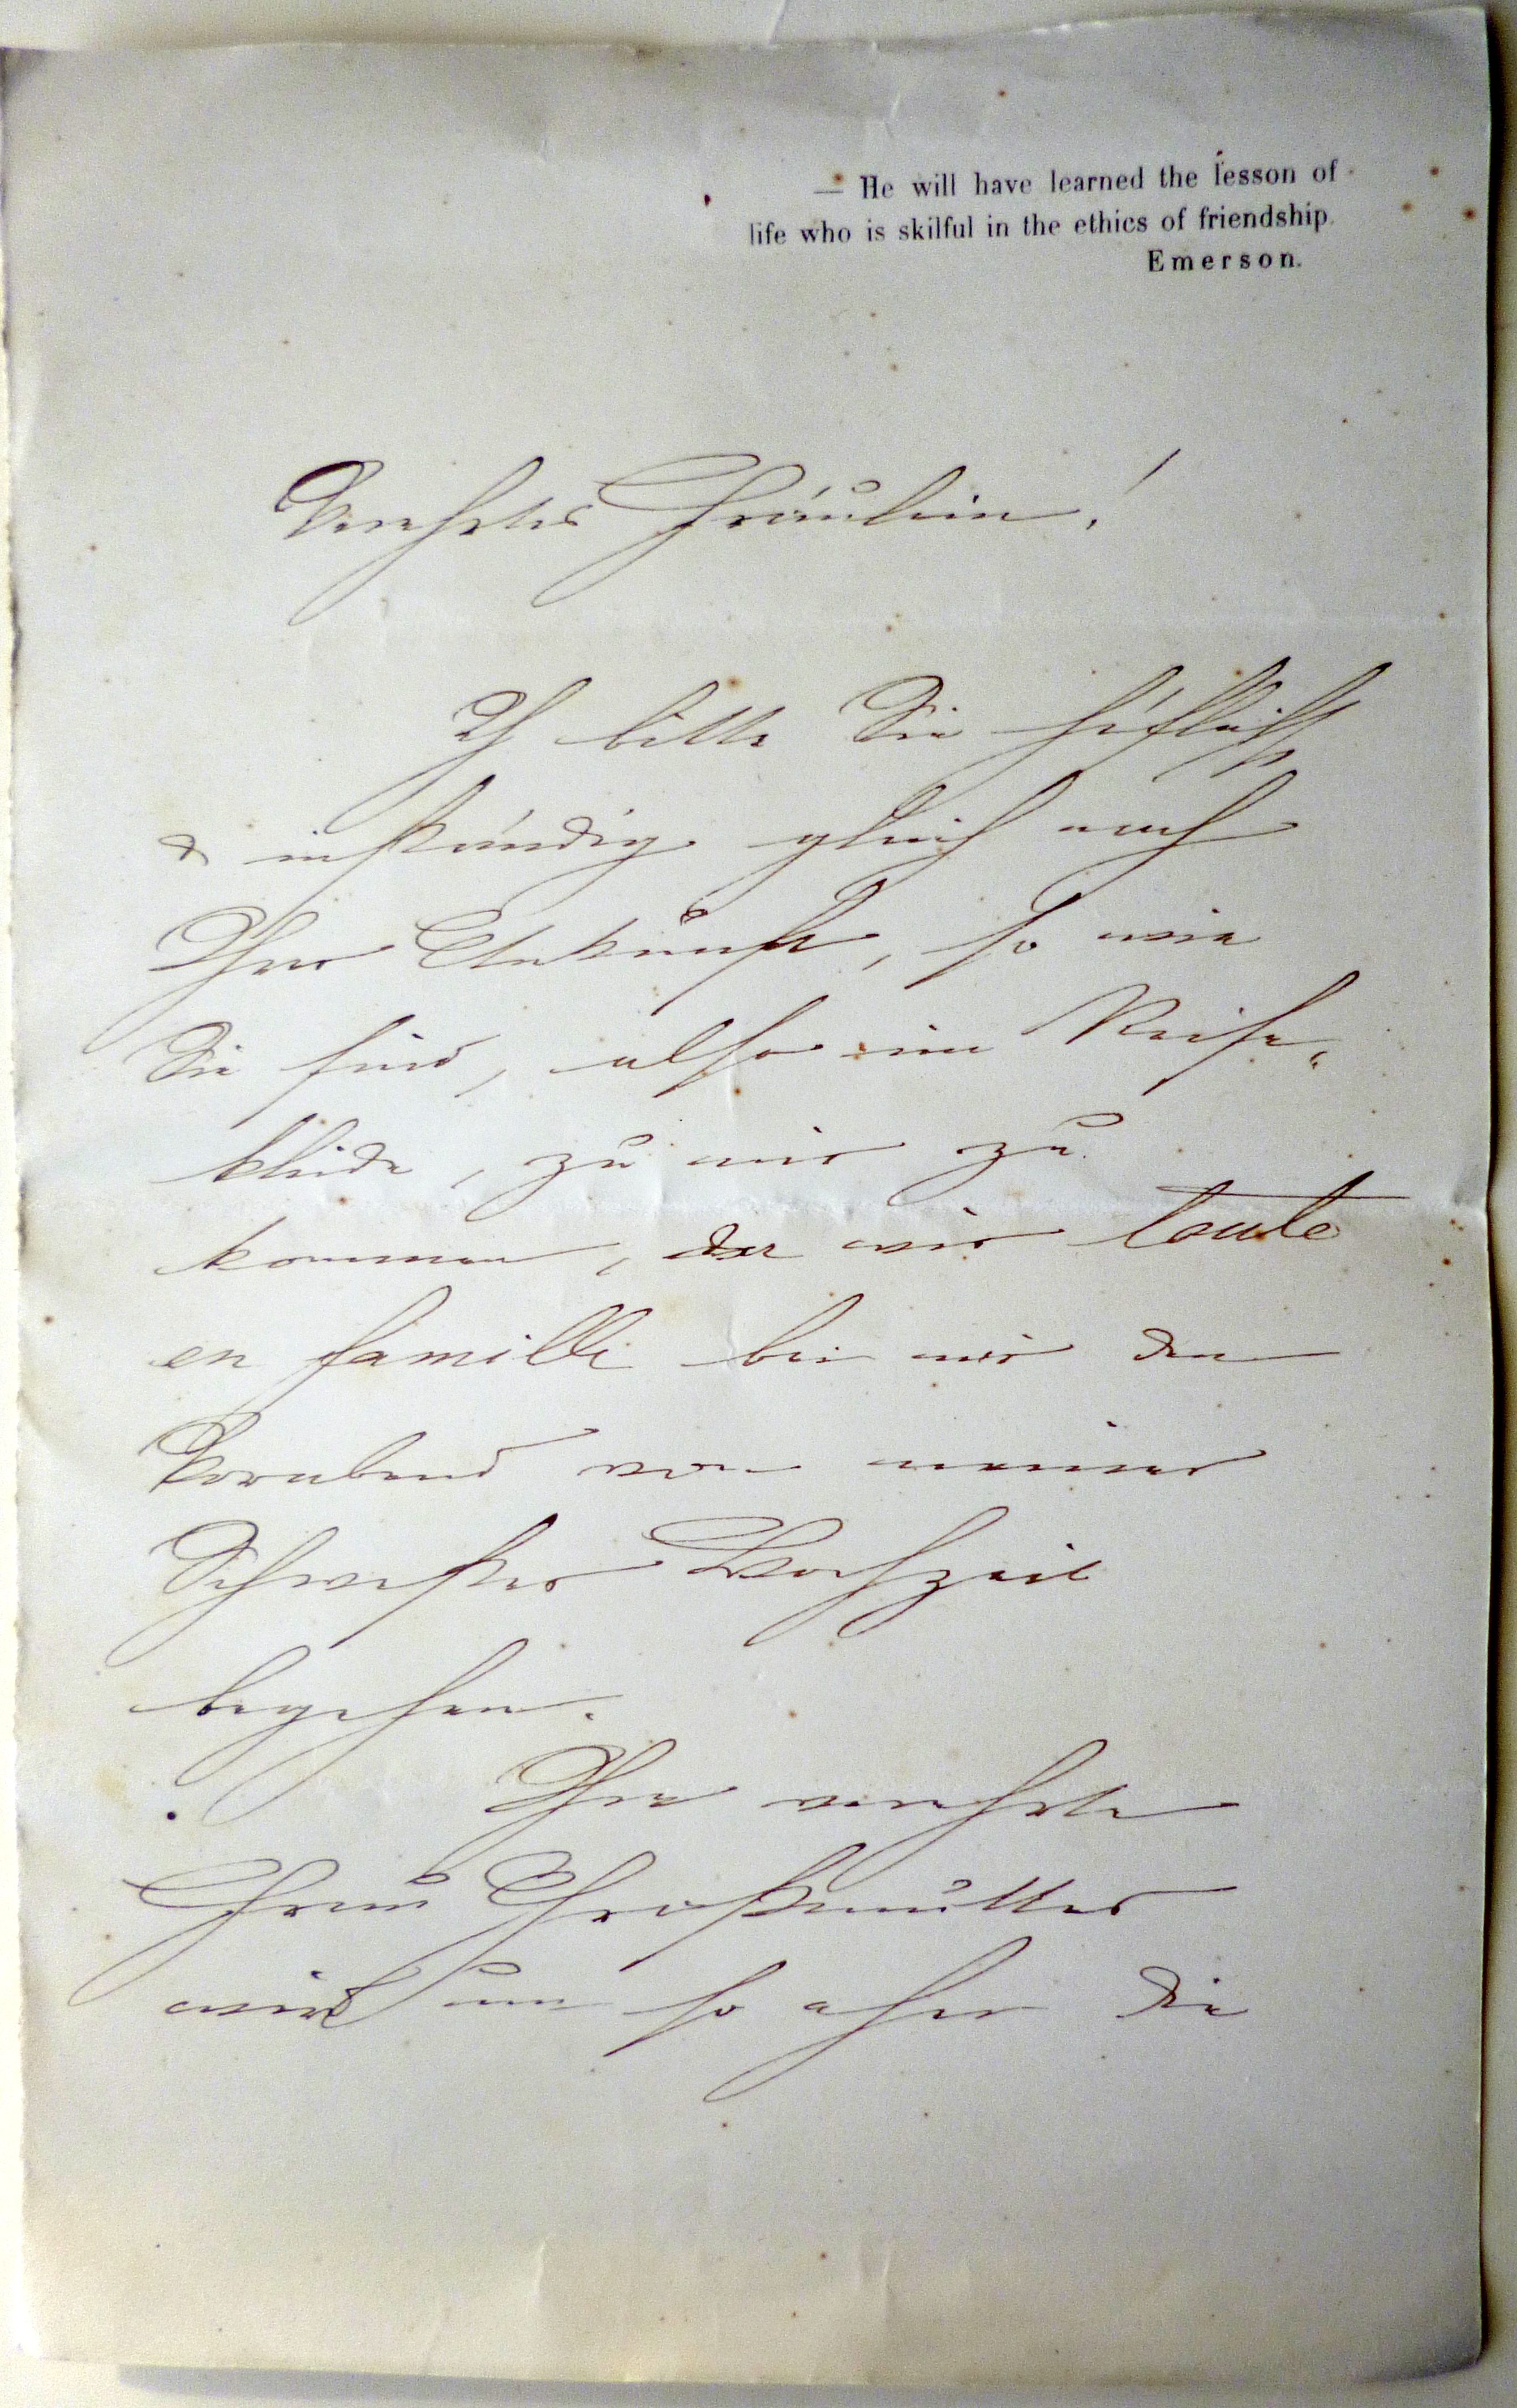 — He will have learned the lesson of
life who is skilful in the ethics of friendship.
Emerson.
Verehrtes Fräulein!
Ich bitte Sie höflichst
& inständig gleich nach
Ihrer Ankunft, so wie
Sie sind, also im Reise-
kleide, zu mir zu
kommen, da wir toute
en famille bei mir den
Vorabend von meiner
Schwester Hochzeit
begehen.
Ihre verehrte
Frau Großmutter
wird um so eher die